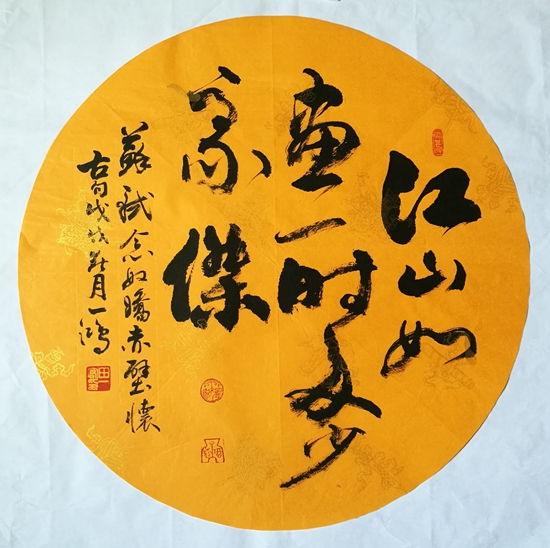 江山如
畫一时多少
豪傑
蘇軾念奴嬌赤壁懷
古句戊戌月一鴻